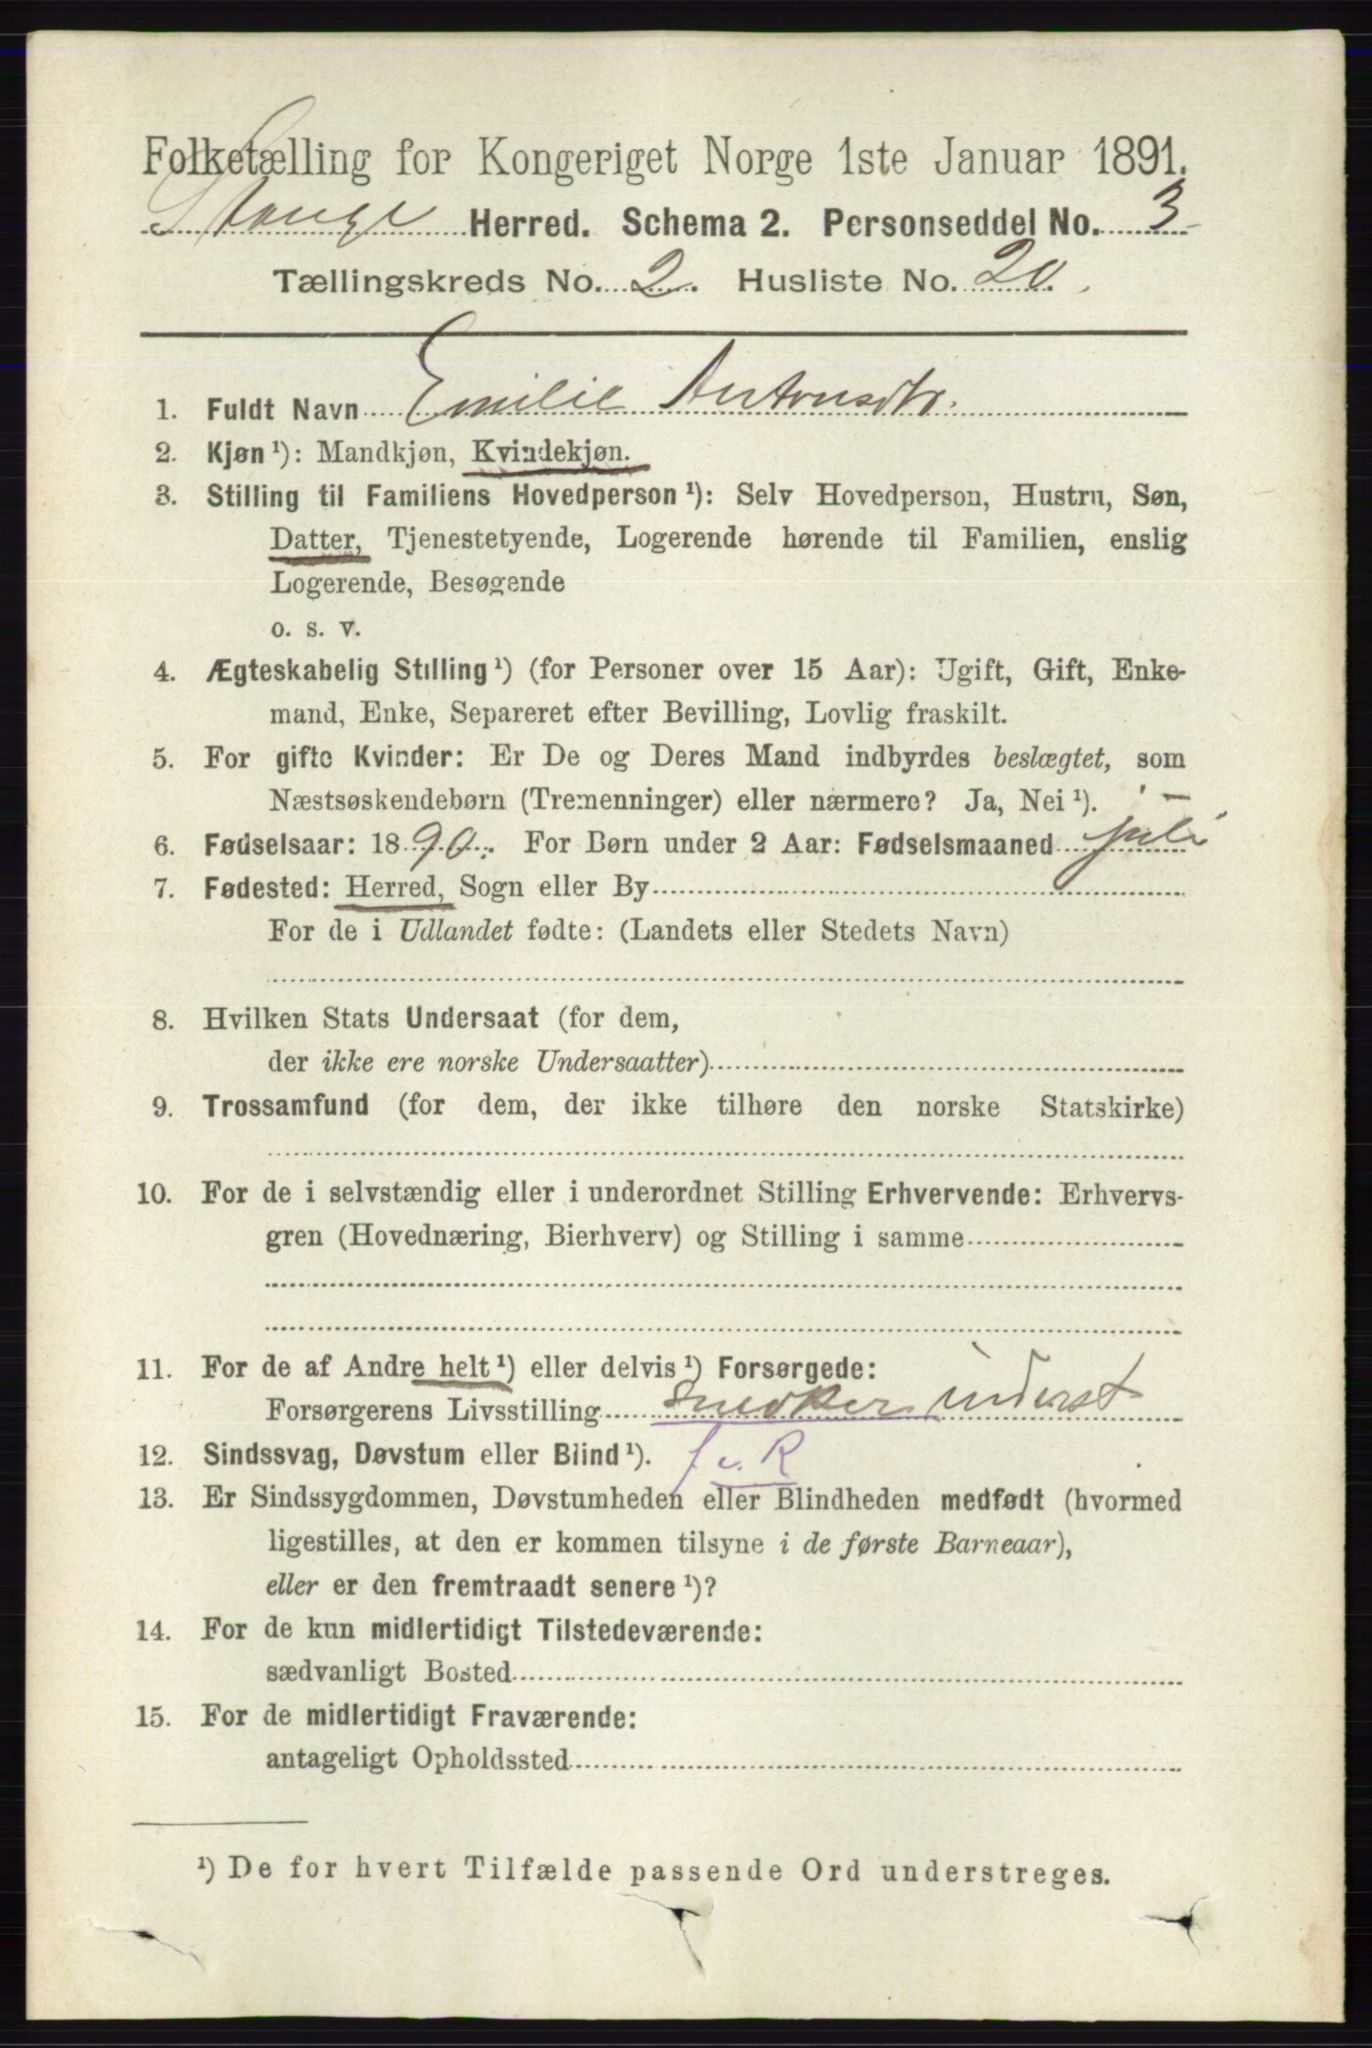 Folketælling for Kongeriget Norge 1ste Januar 1891.
Stange Herred. Schema 2. Personseddel No. 3
Tællingskreds No. 2. Husliste No. 20.
1. Fuldt Navn Emilie Antonsdtr.
2. Kjøn ¹): Mandkjøn, Kvindekjøn.
3. Stilling til Familiens Hovedperson ¹): Selv Hovedperson, Hustru, Søn,
Datter, Tjenestetyende, Logerende hørende til Familien, enslig
Logerende, Besøgende
o. s. v.
4. Ægteskabelig Stilling ¹) (for Personer over 15 Aar): Ugift, Gift, Enke-
mand, Enke, Separeret efter Bevilling, Lovlig fraskilt.
5. For gifte Kvinder: Er De og Deres Mand indbyrdes beslægtet, som
Næstsøskendebørn (Tremenninger) eller nærmere? Ja, Nei ¹).
6. Fødselsaar: 1890. For Børn under 2 Aar: Fødselsmaaned juli
7. Fødested: Herred, Sogn eller By
For de i Udlandet fødte: (Landets eller Stedets Navn)
8. Hvilken Stats Undersaat (for dem,
der ikke ere norske Undersaatter)
9. Trossamfund (for dem, der ikke tilhøre den norske Statskirke)
10. For de i selvstændig eller i underordnet Stilling Erhvervende: Erhvervs-
gren (Hovednæring, Bierhverv) og Stilling i samme
11. For de af Andre helt ¹) eller delvis ¹) Forsørgede:
Forsørgerens Livsstilling Snedker inderst
12. Sindssvag, Døvstum eller Blind ¹).
13. Er Sindssygdommen, Døvstumheden eller Blindheden medfødt (hvormed
ligestilles, at den er kommen tilsyne i de første Barneaar),
eller er den fremtraadt senere ¹)?
14. For de kun midlertidigt Tilstedeværende:
sædvanligt Bosted
15. For de midlertidigt Fraværende:
antageligt Opholdssted
¹) De for hvert Tilfælde passende Ord understreges.